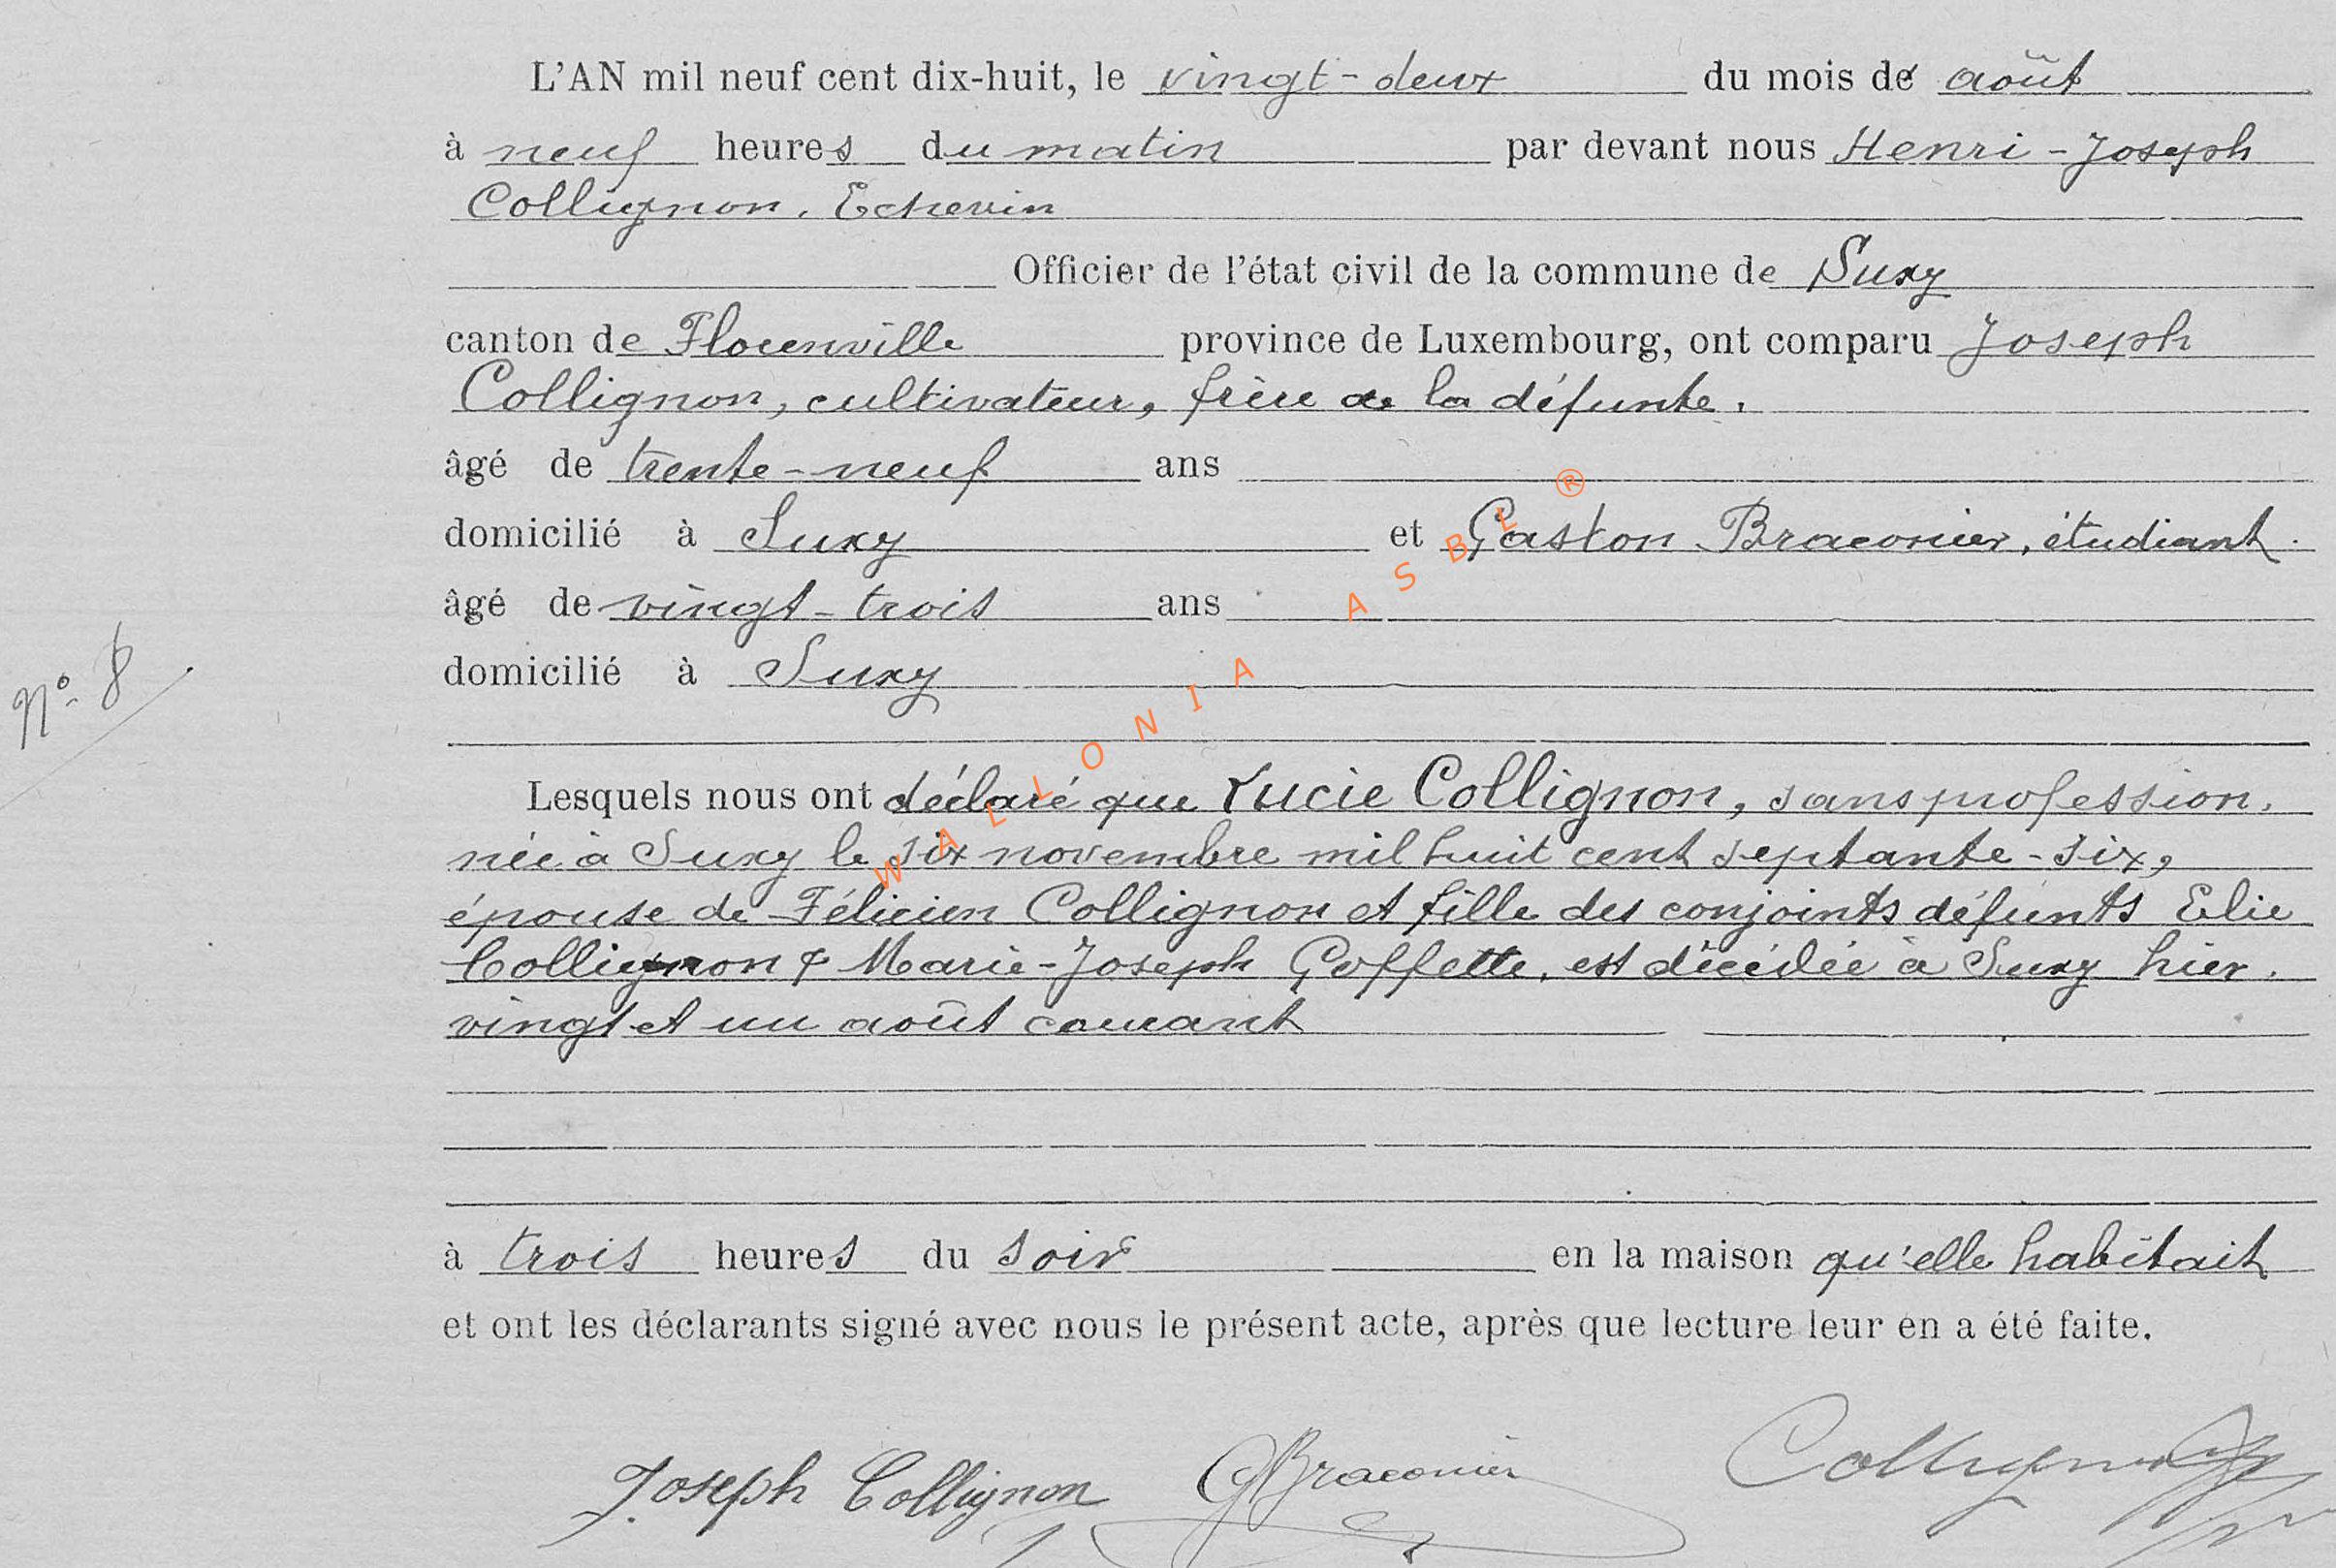 L'AN mil neuf cent dix-huit, le vingt-deux du mois de août
à neuf heures du matin par devant nous Henri-Joseph
Collignon, Echevin
Officier de l'état civil de la commune de Suxy
canton de Florenville province de Luxembourg, ont comparu Joseph
Collignon, cultivateur, frère de la défunte,
âgé de trente-neuf ans
domicilié à Suxy et Gaston Braconier, étudiant.
âgé de vingt-trois ans
domicilié à Suxy
N° 8
Lesquels nous ont déclaré que Lucie Collignon, sans profession,
née à Suxy le six novembre mil huit cent septante-six,
épouse de Félicien Collignon et fille des conjoints défunts Elie
Collignon & Marie-Joseph Goffette, est décédée à Suxy hier,
vingt et un août courant
à trois heures du soir en la maison qu'elle habitait
et ont les déclarants signé avec nous le présent acte, après que lecture leur en a été faite.
Joseph Collignon GBraconier Collignon
WALLONIA ASBL ®